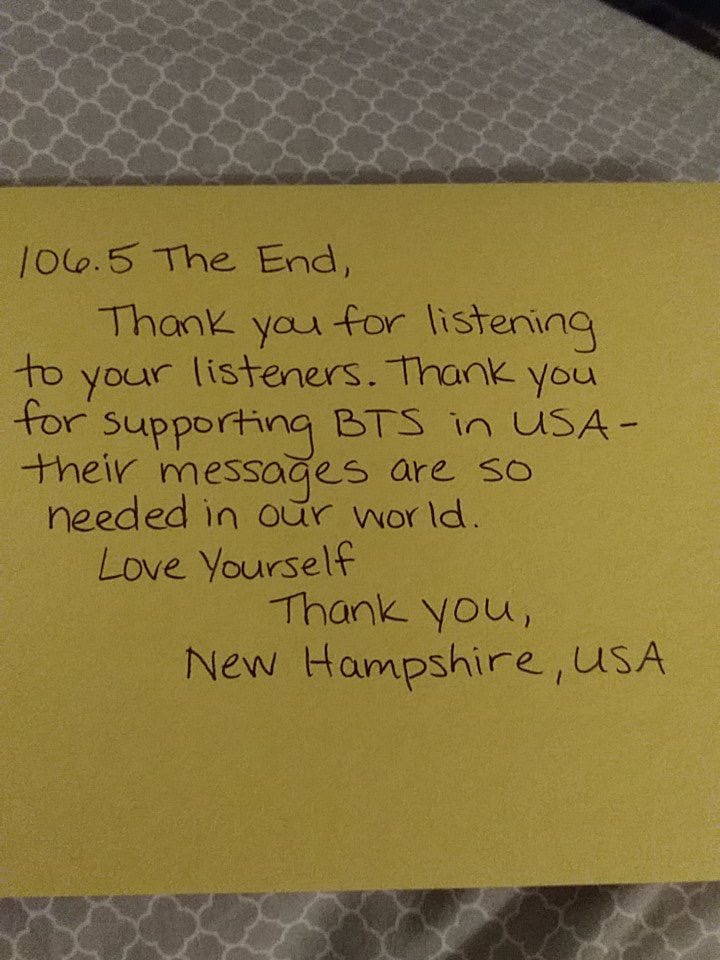 106.5 The End,
Thank you for listening
to your listeners. Thank you
for supporting BTS in USA-
their messages are so
needed in our world.
Love Yourself
Thank you,
New Hampshire, USA